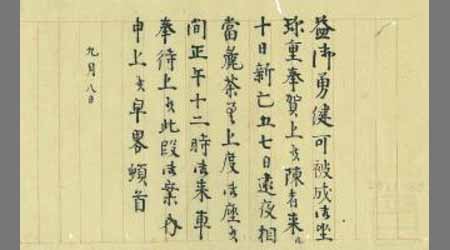 益御勇健可被成御坐
珎重奉賀上候陳者来ル
十日新亡五七日逮夜相
當麁茶呈上度御座候
间正午十二時御来車
奉待上候此段御案内
申上候早畧頓首
九月八日